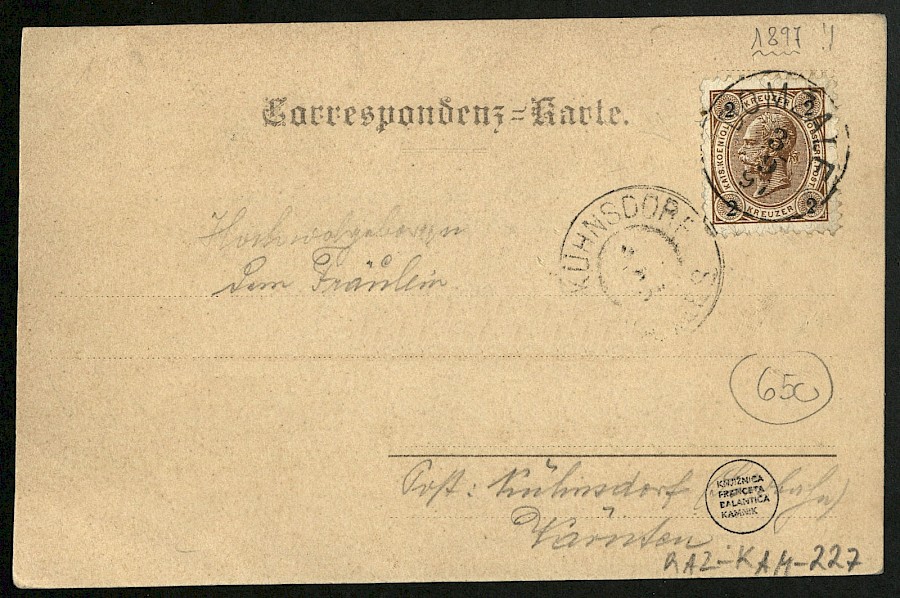 1897
Correspondenz=Karte.
2 KREUZER 2
KAIS. KOENIGL. OESTERR. POST.
2 KREUZER 2
DOMŽALE
KÜHNSDORF
Hochwolgeboren
Dem Fräulein
650
Post: Kühnsdorf
KNJIŽNICA
FRANCETA
BALANTIČA
KAMNIK
Kärnten
RAZ-KAM-227